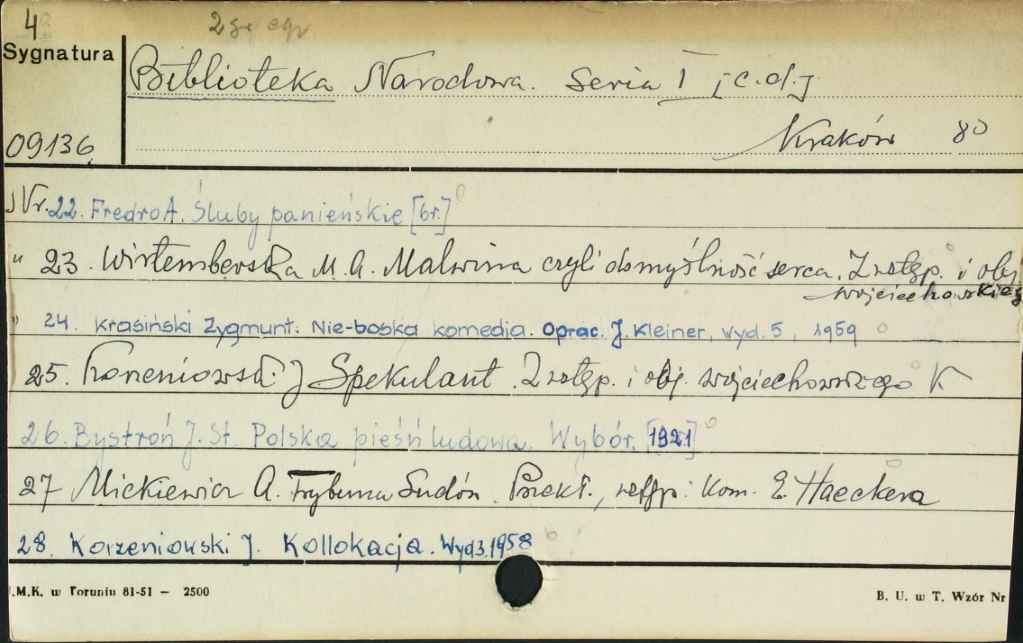 4 2gi egz
Sygnatura
Biblioteka Narodowa. Seria I [c.d.]
Kraków 8⁰
09136
Nr. 22. Fredro A. Śluby panieńskie [br.]
" 23. Wirtemberska M. A. Malwina czyli domyślność serca. Z wstęp. i obj
Wojciechowskieg
" 24. Krasiński Zygmunt. Nie-boska komedia. Oprac. J. Kleiner, wyd. 5, 1959
25. Korzeniowski J Spekulant. Z wstęp. i obj. Wojciechowskiego K
26. Bystroń J. St. Polska pieśń ludowa. Wybór. [1921]
27 Mickiewicz A. Trybuna Ludów. Przekł., wstęp. i kom. E. Haeckera
28. Korzeniowski J. Kollokacja. Wyd 3. 1958
.M.K. w Toruniu 81-51 — 2500
B. U. w T. Wzór Nr